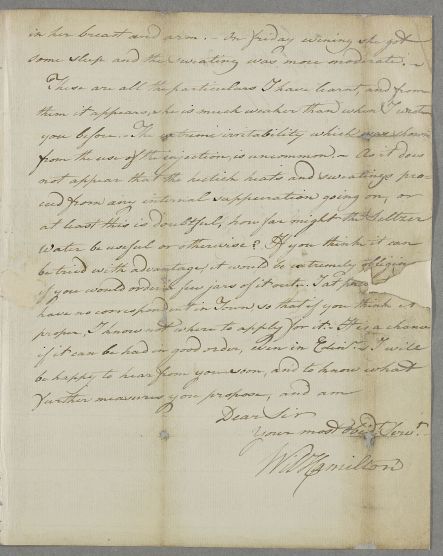 in her breast and arm. - On Friday evening she got
some sleep and the sweating was more moderate. -
These are all the particulars I have learnt, and from
them it appears, she is much weaker than when I wrote
you before. - The extreme irritability which was shown
from the use of the injection, is uncommon. - As it does
not appear that the hectick heats and sweatings pro-
ceed from any internal suppuration going on, or
at least this is doubtful, how far might the Seltzer
Water be useful or otherwise? If you think it can
be tried with advantage, it would be extremely obliging
if you would order a few jars of it out. I at
have no correspondent in Town so that if you think it
proper, I know not where to apply for it. It is a chance
if it can be had in good order, even in Edinr. I will
be happy to hear from you soon, and to know what
further measures you propose, and am
Dear Sir
Your most Obedt. Servt.
Wm Hamilton